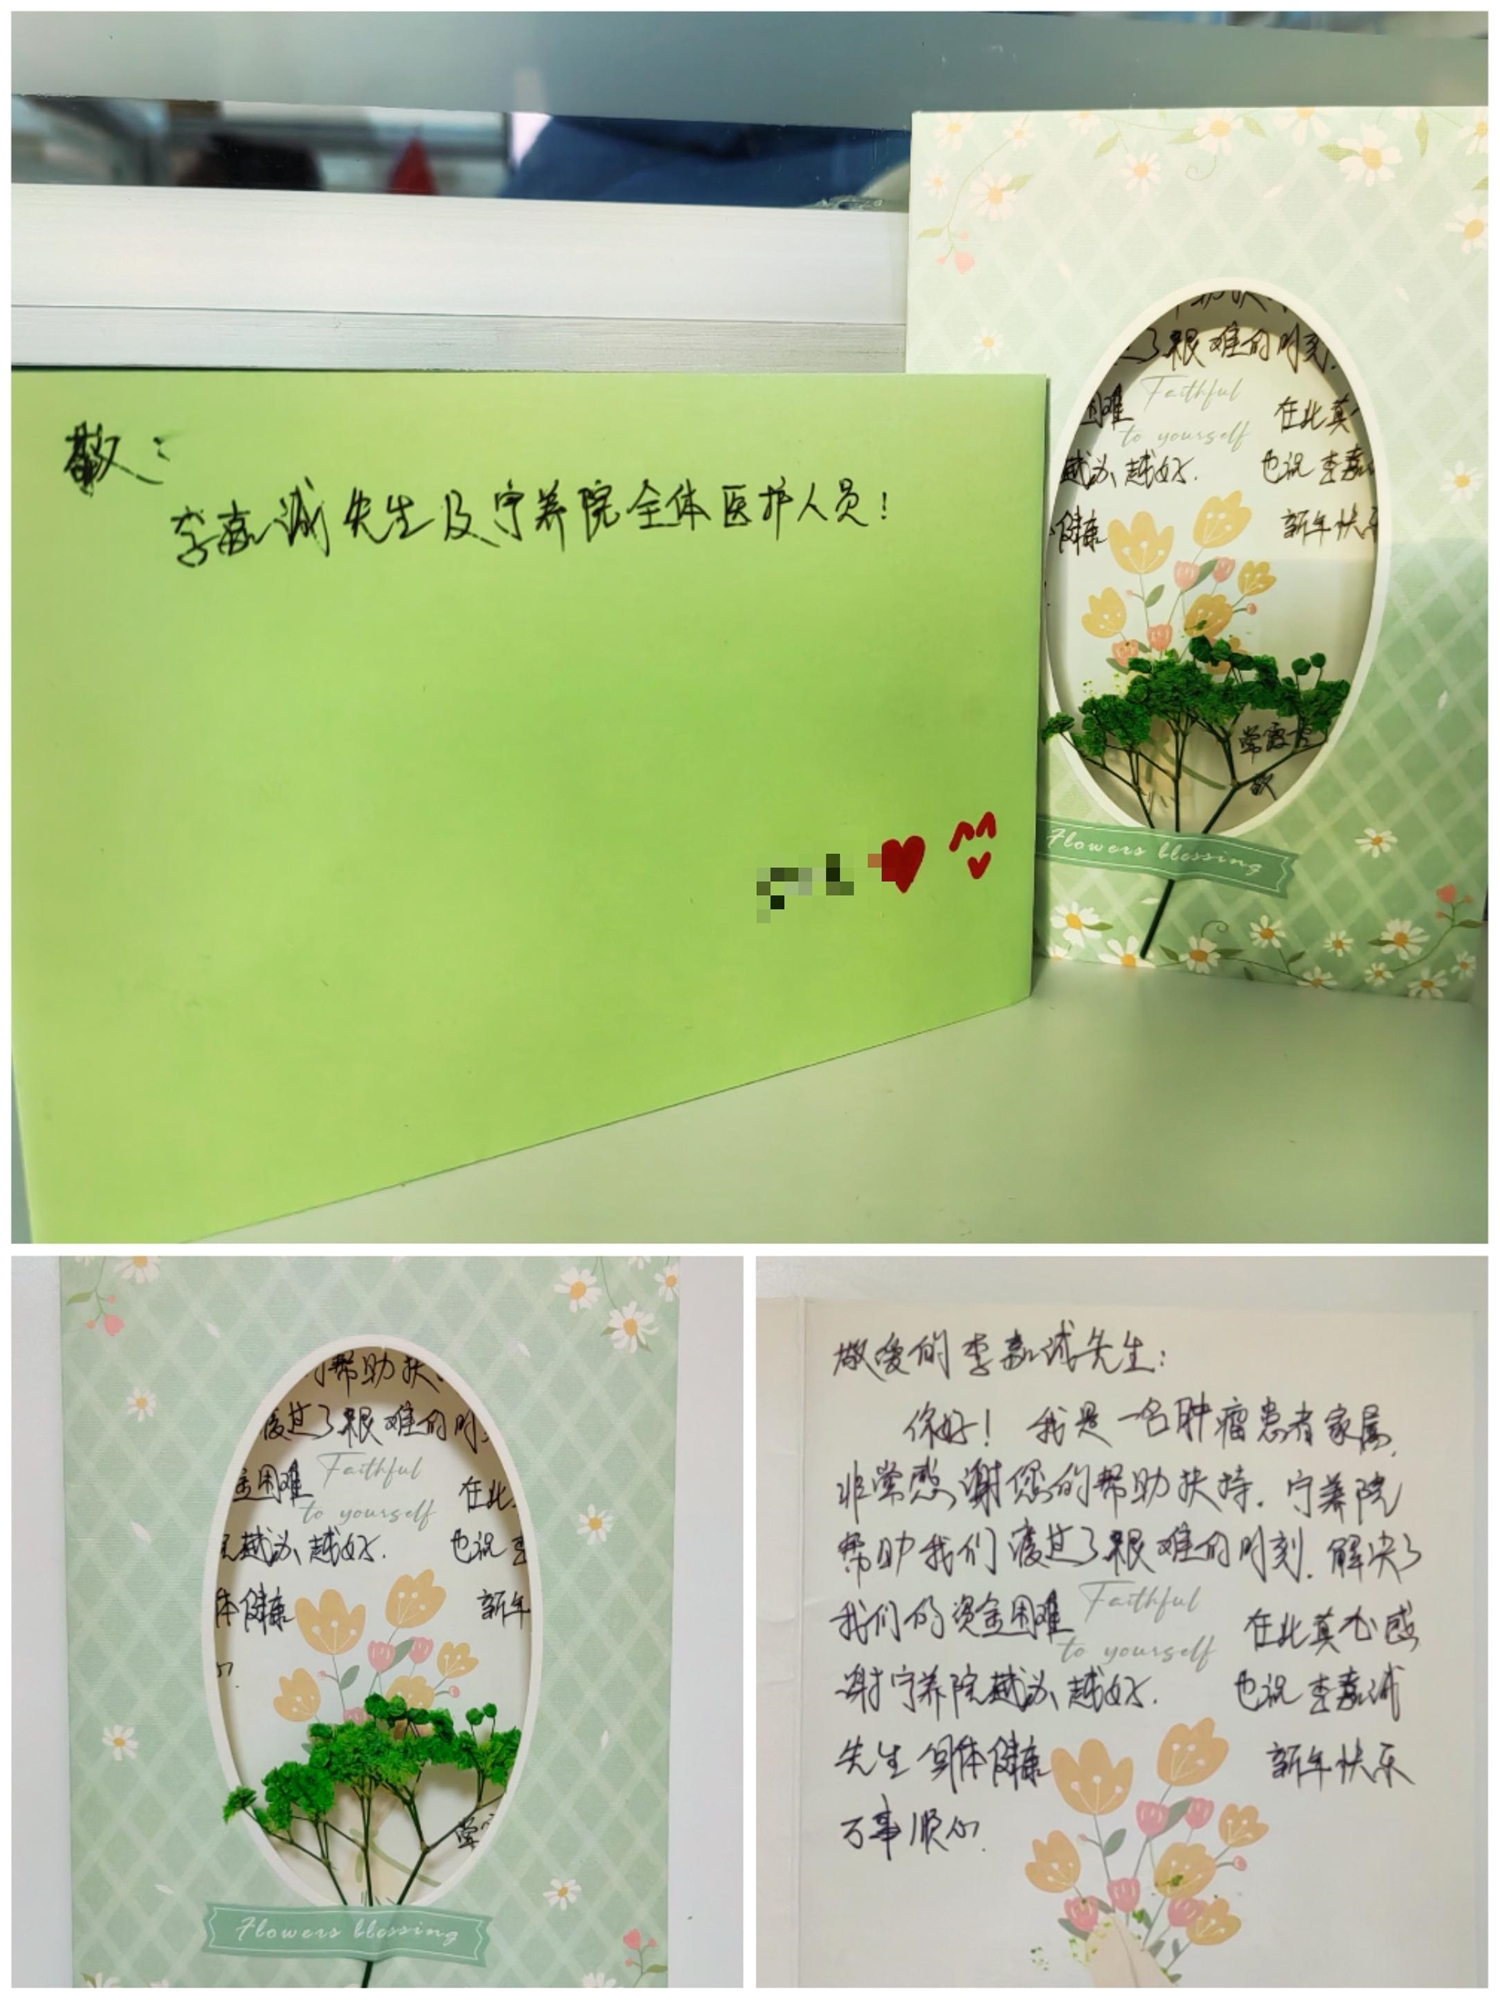 敬:
李嘉诚先生及宁养院全体医护人员!
了艰难的时刻.
困难 Faithful 在此真
to yourself
越办、越好. 也祝李嘉
健康 新年快乐
Flowers blessing
的帮助扶
度过了艰难的时
金困难 Faithful 在此
to yourself
越办、越好. 也祝李
体健康 新年
Flowers blessing
敬爱的李嘉诚先生:
你好! 我是一名肿瘤患者家属.
非常感谢您的帮助扶持. 宁养院
帮助我们度过了艰难的时刻. 解决了
我们的资金困难 Faithful 在此真心感
to yourself
谢宁养院越办、越好. 也祝李嘉诚
先生身体健康 新年快乐
万事顺心.